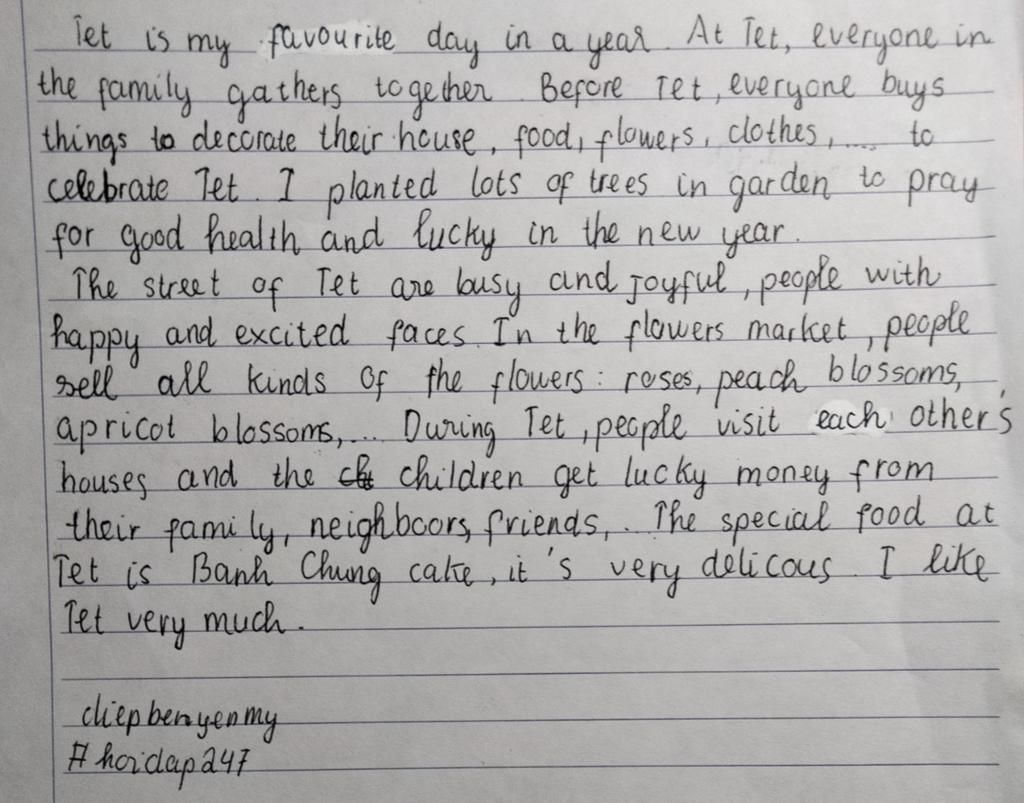 Tet is my favourite day in a year. At Tet, everyone in
the family gathers together. Before Tet, everyone buys
things to decorate their house, food, flowers, clothes,.... to
celebrate Tet. I planted lots of trees in garden to pray
for good health and lucky in the new year.
The street of Tet are busy and joyful, people with
happy and excited faces. In the flowers market, people
sell all kinds of the flowers: roses, peach blossoms,
apricot blossoms,... During Tet, people visit each other's
houses and the children get lucky money from
their family, neighboors, friends,.. The special food at
Tet is Banh Chung cake, it's very delicous. I like
Tet very much.
diepbenyenmy
#hoidap247